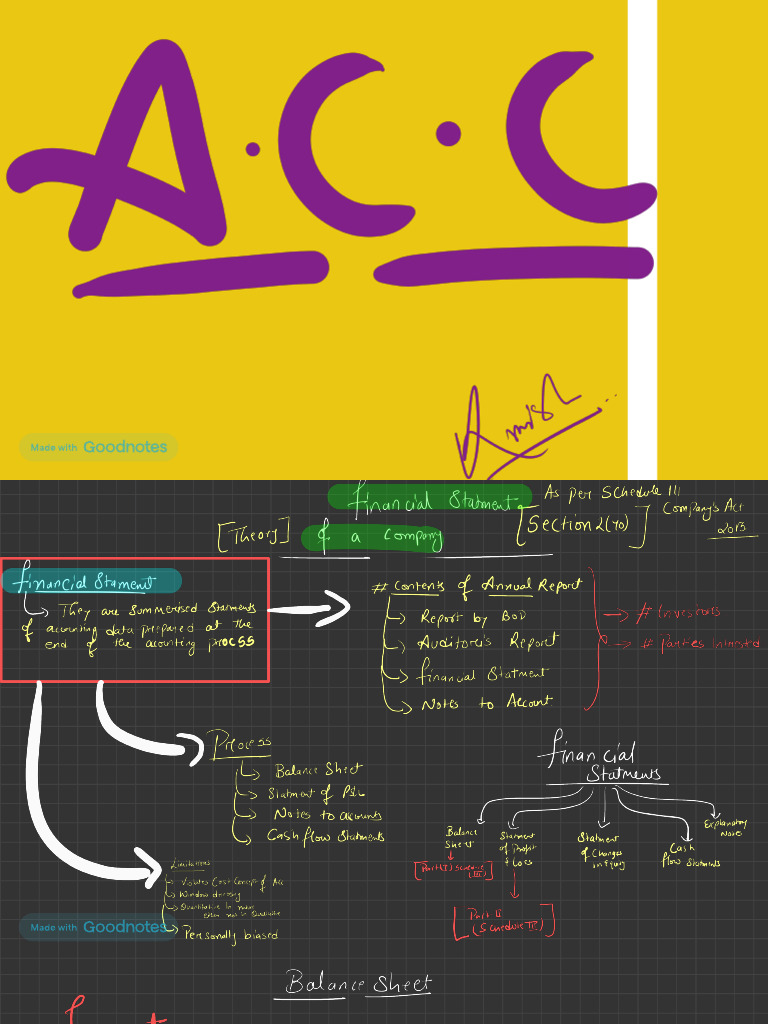 A.C.C
Amish...
Made with Goodnotes
financial Statment
As per Schedule III
Company's Act
2013
[Theory]
of a company
[Section 2(40)]
financial Stament
They are summerised Staments
of accounting data prepared at the
end of the accounting process
# Contents of Annual Report
Report by BOD
Auditor's Report
financial Statment
Notes to Account
# Investors
# Parties Intrested
Process
Balance Sheet
Statment of P&L
Notes to accounts
Cash flow Statments
Limitations
Violates Cost Concept of Acc
Window dressing
Quantitative in nature
other not in Qualitative
Personally biased
Made with Goodnotes
financial
Statments
Balance
Sheet
[Part (I) Schedule
(III)]
Stament
of Profit
& Loss
[Part II
(Schedule III)]
Statment
of Changes
in Equity
Cash
flow Staments
Explanatory
Notes
Balance Sheet